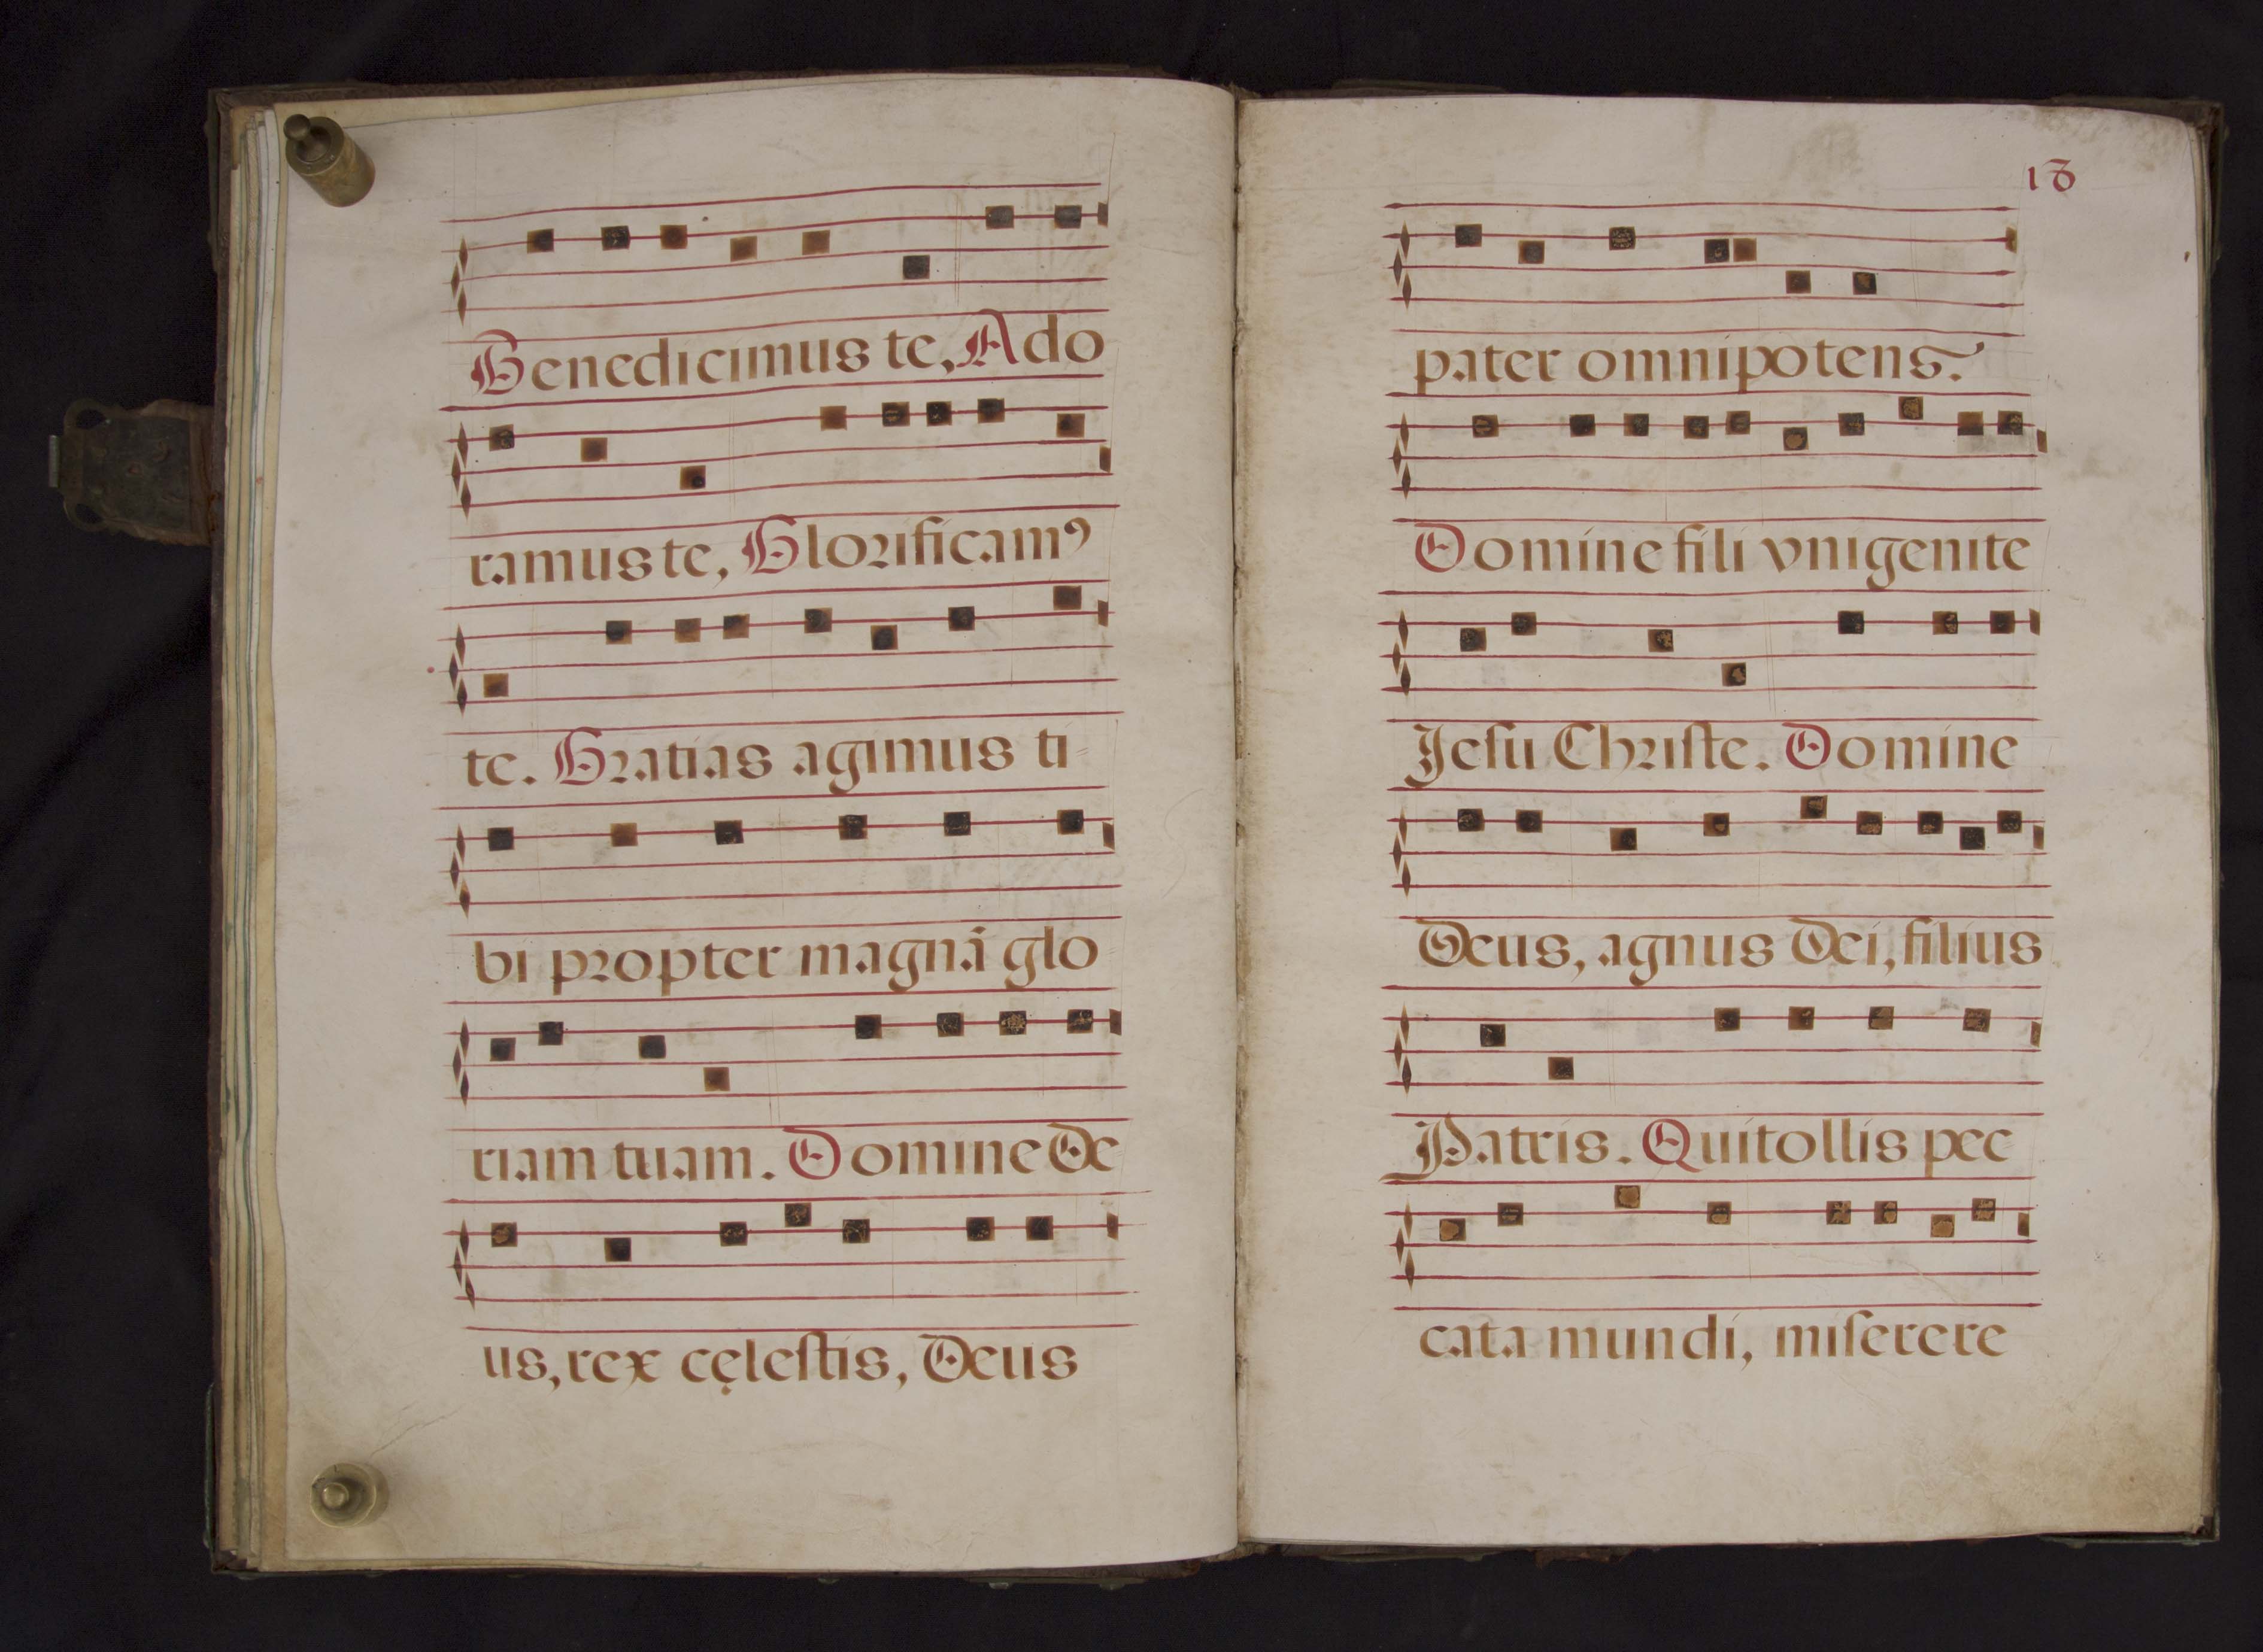 Benedicimus te, Ado
ramus te, Glorificamꝰ
te. Gratias agimus ti
bi propter magnã glo
riam tuam. Domine De
us, rex cęleſtis, Deus
18
pater omnipotens.
Domine fili vnigenite
Jeſu Chriſte. Domine
Deus, agnus Dei, filius
Patris. Qui tollis pec
cata mundi, miſerere